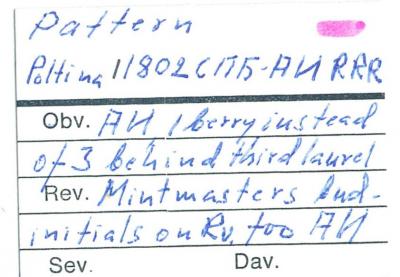 Pattern
Poltina 1802 СПБ-АИ RRR
Obv. АИ 1 berry instead
of 3 behind third laurel
Rev. Mintmasters 2nd.
initials on Rv. too АИ
Sev. Dav.